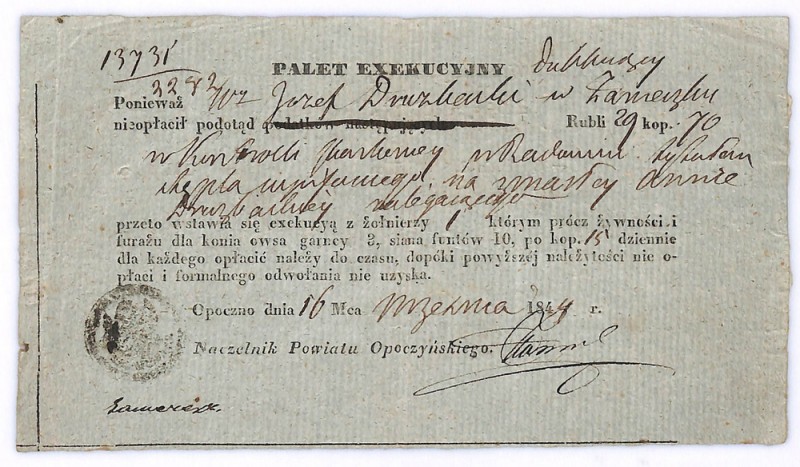 13731
PALET EXEKUCYJNY
2282
Ponieważ Jozef Druzbacki w Zameczku
nieopłacił podotąd podatków następujących Rubli 29 kop. 70
w Kontrolli Skarbowey w Radomiu tytułem
stępla na zmarłey Annie
Druzbackiey należącego
przeto wstawia się exekucyą z żołnierzy 1 którym prócz żywności i
furażu dla konia owsa garncy 3, siana funtów 10, po kop. 15 dziennie
dla każdego opłacić należy do czasu, dopóki powyższej należytości nie o-
płaci i formalnego odwołania nie uzyska.
Opoczno dnia 16 Mca Września 1844 r.
Naczelnik Powiatu Opoczyńskiego.